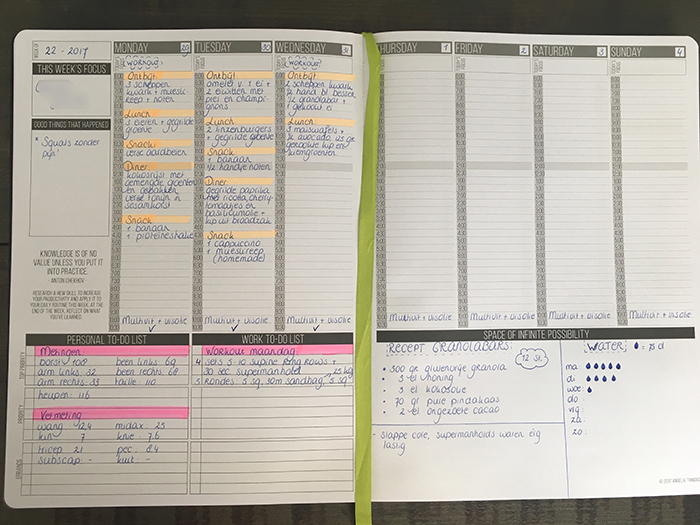 WEEK OF
22 - 2017
THIS WEEK'S FOCUS
GOOD THINGS THAT HAPPENED
* Squats zonder
pijn!
KNOWLEDGE IS OF NO
VALUE UNLESS YOU PUT IT
INTO PRACTICE.
- ANTON CHEKHOV
RESEARCH A NEW SKILL TO INCREASE
YOUR PRODUCTIVITY AND APPLY IT TO
YOUR DAILY ROUTINE THIS WEEK. AT THE
END OF THE WEEK, REFLECT ON WHAT
YOU'VE LEARNED.
MONDAY 29
WORKOUT
Ontbijt
3 scheppen
kwark + muesli-
reep + noten
Lunch
3 eieren + gegrilde
groente
Snack
verse aardbeien
Diner
kokosrijst met
gemengde groenten
en gebakken
verse tonijn in
sesamkorst
Snack
1 banaan
1 proteineshake
Multivit + visolie
TUESDAY 30
Ontbijt
omelet v. 1 ei +
2 eiwitten met
prei en champi-
gnons
Lunch
2 linzenburgers
+ gegrilde groente
Snack
1 banaan
1/2 handje noten
Diner
gegrilde paprika
met ricotta, cherry-
tomaatjes en
basilicumolie +
kip uit broodzak
Snack
1 cappuccino
+ mueslireep
(homemade)
Multivit + visolie
WEDNESDAY 31
WORKOUT
Ontbijt
2 scheppen kwark
1/2 hand bl. bessen
1/2 granolabar +
1 gekookt ei
Lunch
3 maiswafels +
1/2 avocado, us ge-
rookte kip en
tuingroenten
Multivit + visolie
THURSDAY 1
Multivit + visolie
FRIDAY 2
Multivit + visolie
SATURDAY 3
Multivit + visolie
SUNDAY 4
Multivit + visolie
PERSONAL TO-DO LIST
TOP PRIORITY
Metingen
borst 100 been links: 69
arm links: 32 been rechts: 68
arm rechts: 33 taille: 110
heupen: 116
PRIORITY
Vetmeting
wang 12,4 midax: 25
kin 7 knie: 7,6
tricep 21 pec: 8.4
subscap: - kuit: -
ERRANDS
WORK TO-DO LIST
Workout maandag:
4 sets 5-10 supine ring rows +
30 sec. supermanhold 25 kg
3 Rondes: 5 sq, 30m sandbag, 5 sq
SPACE OF INFINITE POSSIBILITY
RECEPT GRANOLABARS:
12 St.
300 gr gluvrije granola
3 el honing
3 el kokosolie
70 gr pure pindakaas
2 el ongezoete cacao
- slappe core, supermanholds waren erg
lastig
WATER = 75 cl
ma
di
woe
do
vrij
za
zo